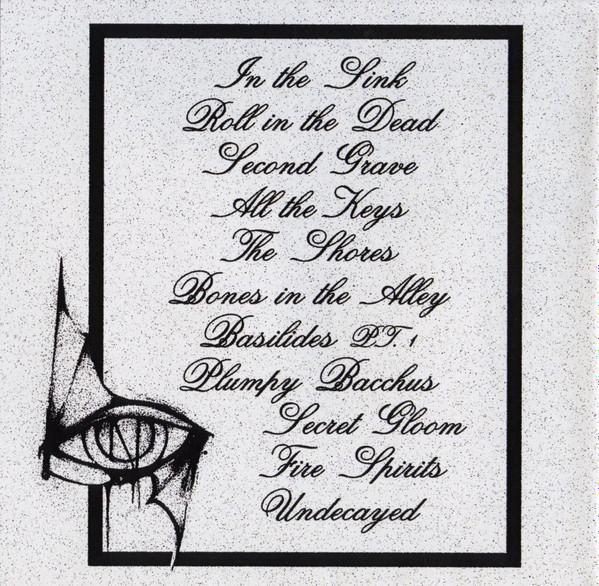 In the Sink
Roll in the Dead
Second Grave
All the Keys
The Shores
Bones in the Alley
Basilides PT. 1
Plumpy Bacchus
Secret Gloom
Fire Spirits
Undecayed